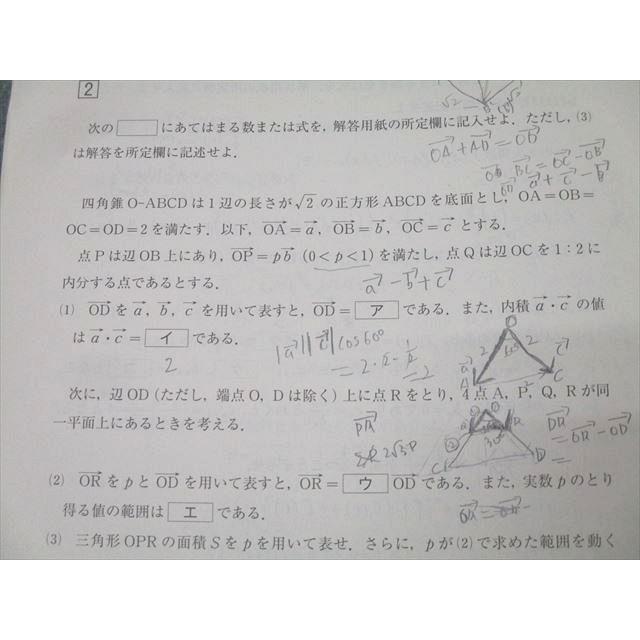 2
次の□にあてはまる数または式を, 解答用紙の所定欄に記入せよ. ただし, (3)
は解答を所定欄に記述せよ.
OA + AD = OD
四角錐 O-ABCD は 1 辺の長さが √2 の正方形 ABCD を底面とし, OA=OB=
OC=OD=2 を満たす. 以下, OA=a, OB=b, OC=c とする.
点 P は辺 OB 上にあり, OP=pb (0<p<1) を満たし, 点 Q は辺 OC を 1:2 に
内分する点であるとする.
a - b + c
(1) OD を a, b, c を用いて表すと, OD= ア である. また, 内積 a・c の値
は a・c= イ である.
2
|a||c|cos60°
=2
次に, 辺 OD (ただし, 端点 O, D は除く) 上に点 R をとり, 4 点 A, P, Q, R が同
一平面上にあるときを考える.
(2) OR を p と OD を用いて表すと, OR= ウ OD である. また, 実数 p のとり
得る値の範囲は エ である.
(3) 三角形 OPR の面積 S を p を用いて表せ. さらに, p が(2)で求めた範囲を動く